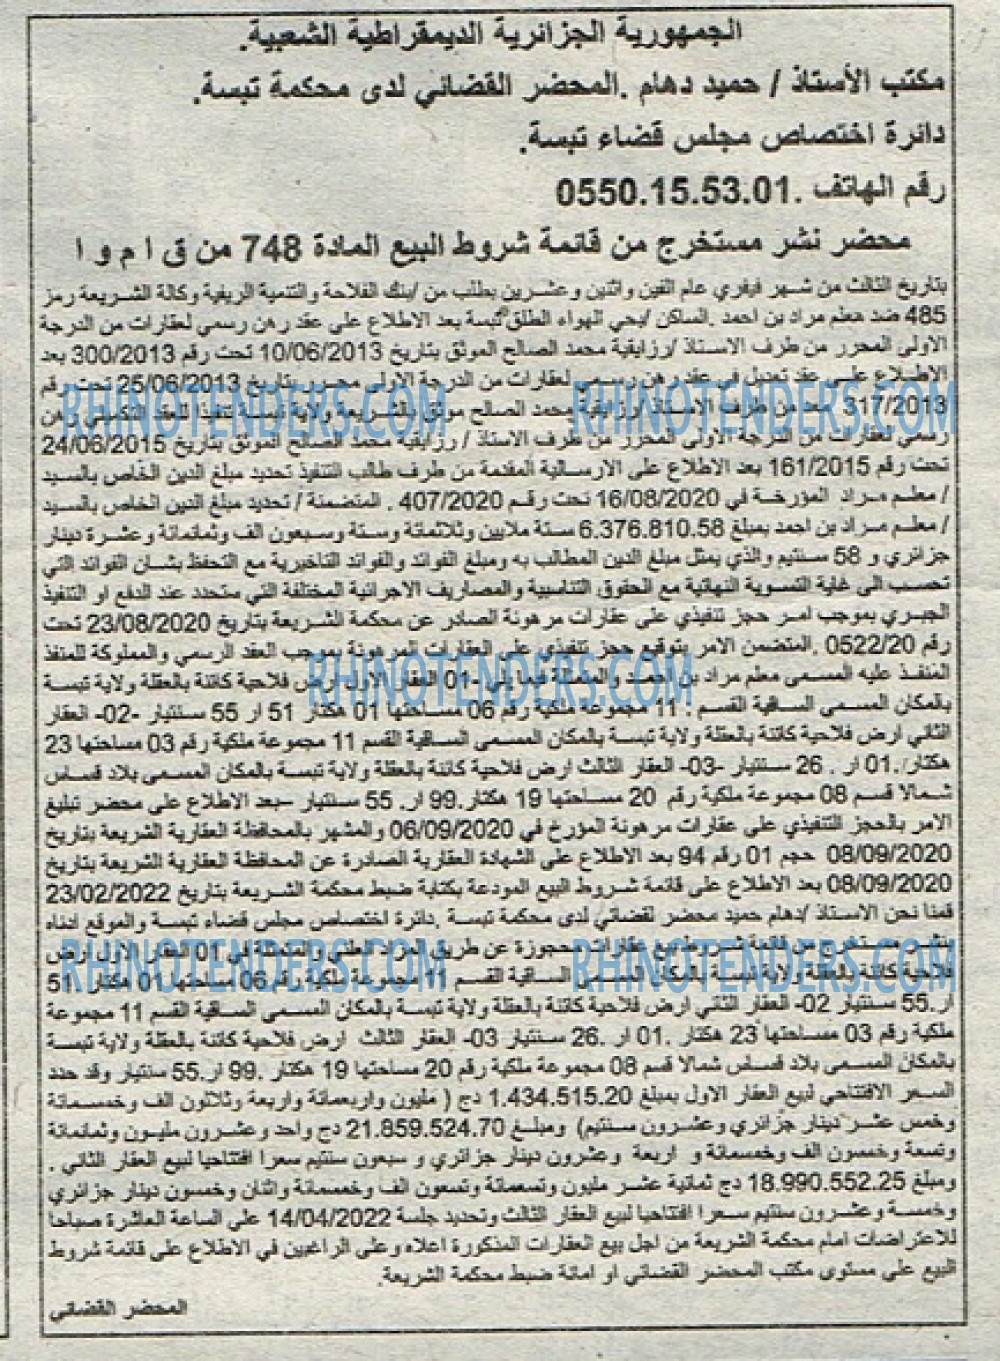 الجمهورية الجزائرية الديمقراطية الشعبية.
مكتب الأستاذ / حميد دهام .المحضر القضائي لدى محكمة تبسة.
دائرة اختصاص مجلس قضاء تبسة.
رقم الهاتف .0550.15.53.01
محضر نشر مستخرج من قائمة شروط البيع المادة 748 من ق ا م و ا
بتاريخ الثالث من شهر فيفري عام الفين واثنين وعشرين بطلب من /بنك الفلاحة والتنمية الريفية وكالة الشريعة رمز
485 ضد معلم مراد بن احمد .الساكن /يحي الهواء الطلق تبسة بعد الاطلاع على عقد رهن رسمي لعقارات من الدرجة
الاولى المحرر من طرف الاستاذ /رزايقية محمد الصالح الموثق بتاريخ 10/06/2013 تحت رقم 300/2013 بعد
الاطلاع على عقد تعديل في عقد رهن رسمي لعقارات من الدرجة الاولى محرر بتاريخ 25/06/2013 تحت رقم
317/2013 بعد من طرف الاستاذ /رزايقية محمد الصالح موثق بالشريعة ولاية تبسة تنفيذا للعقد التكميلي رهن
رسمي لعقارات من الدرجة الاولى المحرر من طرف الاستاذ / رزايقية محمد الصالح الموثق بتاريخ 24/06/2015
تحت رقم 161/2015 بعد الاطلاع على الارسالية المقدمة من طرف طالب التنفيذ تحديد مبلغ الدين الخاص بالسيد
/ معلم مراد المؤرخة في 16/08/2020 تحت رقم 407/2020 . المتضمنة / تحديد مبلغ الدين الخاص بالسيد
/ معلم مراد بن احمد بمبلغ 6.376.810.58 ستة ملايين وثلاثمائة وستة وسبعون الف وثمانمائة وعشرة دينار
جزائري و 58 سنتيم والذي يمثل مبلغ الدين المطالب به ومبلغ الفوائد والفوائد التاخيرية مع التحفظ بشان الفوائد التي
تحسب الى غاية التسوية النهائية مع الحقوق التناسبية والمصاريف الاجرائية المختلفة التي ستحدد عند الدفع او التنفيذ
الجبري بموجب امر حجز تنفيذي على عقارات مرهونة الصادر عن محكمة الشريعة بتاريخ 23/08/2020 تحت
رقم 0522/20 .المتضمن الامر بتوقيع حجز تنفيذي على العقارات المرهونة بموجب العقد الرسمي والمملوكة للمنفذ
المنفذ عليه المسمى معلم مراد بن احمد والمتمثلة فيما يلي -01 العقار الاول ارض فلاحية كائنة بالعقلة ولاية تبسة
بالمكان المسمى الساقية القسم : 11 مجموعة ملكية رقم 06 مساحتها 01 هكتار 51 ار 55 سنتيار -02- العقار
الثاني ارض فلاحية كائنة بالعقلة ولاية تبسة بالمكان المسمى الساقية القسم 11 مجموعة ملكية رقم 03 مساحتها 23
هكتار/.01 ار . 26 سنتيار -03- العقار الثالث ارض فلاحية كائنة بالعقلة ولاية تبسة بالمكان المسمى بلاد قساس
شمالا قسم 08 مجموعة ملكية رقم 20 مساحتها 19 هكتار.99 ار. 55 سنتيار -بعد الاطلاع على محضر تبليغ
الامر بالحجز التنفيذي على عقارات مرهونة المؤرخ في 06/09/2020 والمشهر بالمحافظة العقارية الشريعة بتاريخ
08/09/2020 حجم 01 رقم 94 بعد الاطلاع على الشهادة العقارية الصادرة عن المحافظة العقارية الشريعة بتاريخ
08/09/2020 بعد الاطلاع على قائمة شروط البيع المودعة بكتابة ضبط محكمة الشريعة بتاريخ 23/02/2022
قمنا نحن الاستاذ /دهام حميد محضر لقضائي لدى محكمة تبسة .دائرة اختصاص مجلس قضاء تبسة والموقع ادناه
بنشر مستخرج من قائمة شروط بيع عقارات المحجوزة عن طريق المزاد العلني والمتمثلة في 01 العقار الاول ارض
فلاحية كائنة بالعقلة ولاية تبسة بالمكان المسمى الساقية القسم 11 مجموعة ملكية رقم 06 مساحتها 01 هكتار 51
ار.55 سنتيار 02- العقار الثاني ارض فلاحية كائنة بالعقلة ولاية تبسة بالمكان المسمى الساقية القسم 11 مجموعة
ملكية رقم 03 مساحتها 23 هكتار .01 ار .26 سنتيار 03- العقار الثالث ارض فلاحية كائنة بالعقلة ولاية تبسة
بالمكان المسمى بلاد قساس شمالا قسم 08 مجموعة ملكية رقم 20 مساحتها 19 هكتار .99 ار.55 سنتيار وقد حدد
السعر الافتتاحي لبيع العقار الاول بمبلغ 1.434.515.20 دج ( مليون واربعمائة واربعة وثلاثون الف وخمسمائة
وخمس عشر دينار جزائري وعشرون سنتيم) ومبلغ 21.859.524.70 دج واحد وعشرون مليون وثمانمائة
وتسعة وخمسون الف وخمسمائة و اربعة وعشرون دينار جزائري و سبعون سنتيم سعرا افتتاحيا لبيع العقار الثاني .
ومبلغ 18.990.552.25 دج ثمانية عشر مليون وتسعمائة وتسعون الف وخمسمائة واثنان وخمسون دينار جزائري
وخمسة وعشرون سنتيم سعرا افتتاحيا لبيع العقار الثالث وتحديد جلسة 14/04/2022 على الساعة العاشرة صباحا
للاعتراضات امام محكمة الشريعة من اجل بيع العقارات المذكورة اعلاه وعلى الراغبين في الاطلاع على قائمة شروط
البيع على مستوى مكتب المحضر القضائي او امانة ضبط محكمة الشريعة.
المحضر القضائي
RHINOTENDERS.COM
RHINOTENDERS.COM
RHINOTENDERS.COM
RHINOTENDERS.COM
RHINOTENDERS.COM